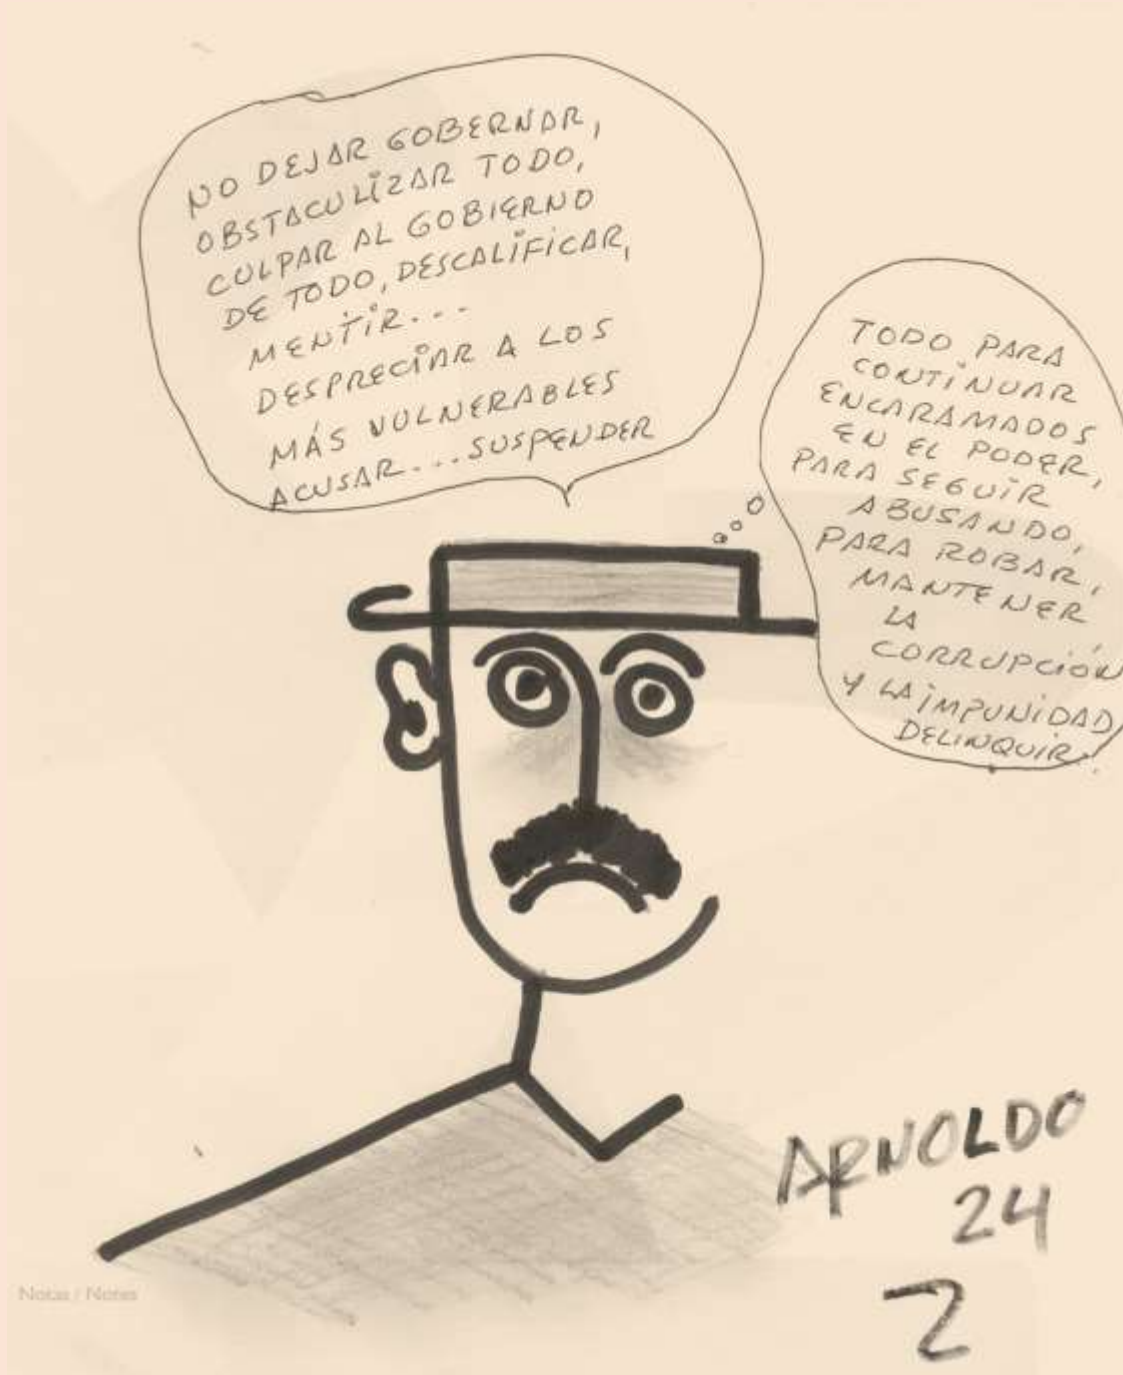 NO DEJAR GOBERNAR,
OBSTACULIZAR TODO,
CULPAR AL GOBIERNO
DE TODO, DESCALIFICAR,
MENTIR...
DESPRECIAR A LOS
MÁS VULNERABLES
ACUSAR....SUSPENDER
TODO PARA
CONTINUAR
ENCARAMADOS
EN EL PODER,
PARA SEGUIR
ABUSANDO,
PARA ROBAR,
MANTENER
LA
CORRUPCIÓN
Y LA IMPUNIDAD,
DELINQUIR.
ARNOLDO
24
2
Notas / Notes